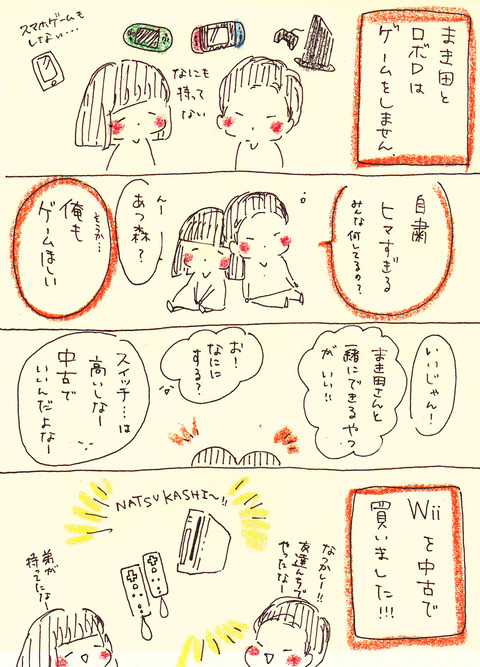 まき田と
ロボDは
ゲームをしません
スマホゲームも
しない…
なにも
持って
ない
自粛
ヒマすぎる
みんな何してるの?
んー
あつ森?
そうか…
俺も
ゲームほしい
いいじゃん!
まき田さんと
一緒にできるやつ
がいい!!
お!
なにに
する?
スイッチ…は
高いしなー
中古で
いいんだよなー
Wiiを中古で
買いました!!!
NATSUKASHI〜!!
なつかしー!!
友達んちで
やったなー
弟が
持ってたなー